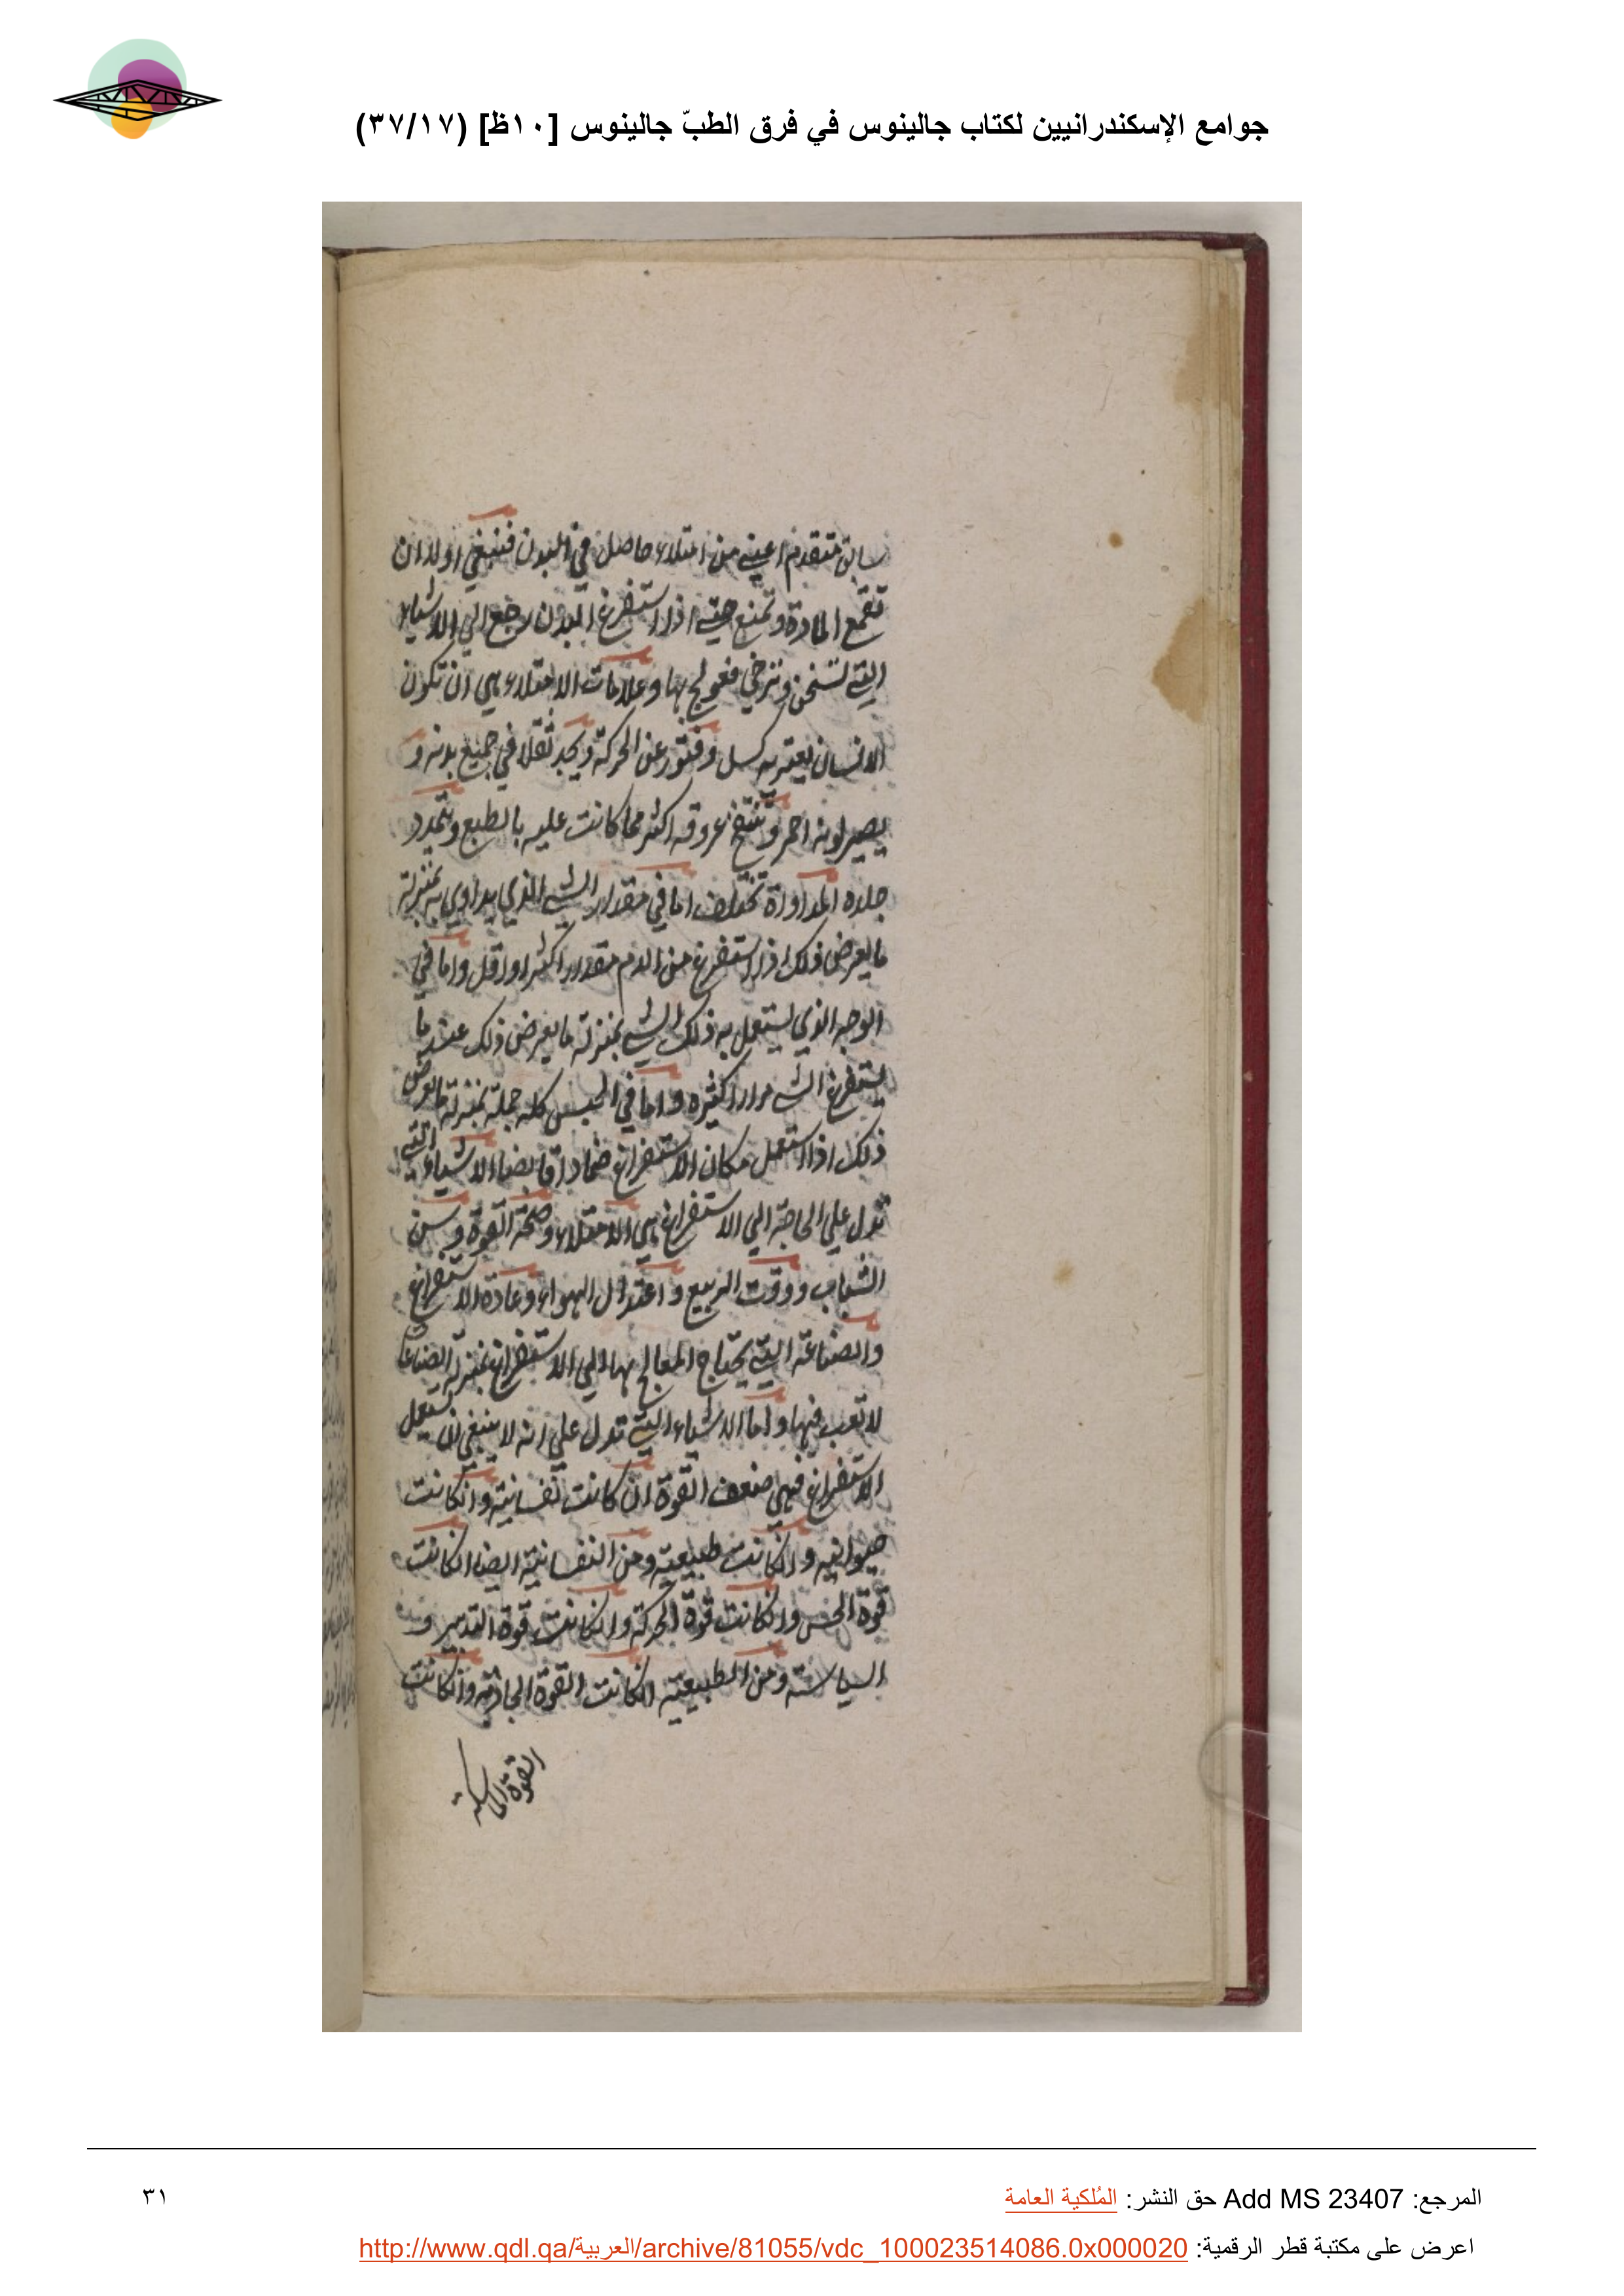 جوامع الإسكندرانيين لكتاب جالينوس في فرق الطبّ جالينوس [١٠ظ] (٣٧/١٧)
سابق متقدم اعني من امتلاء حاصل في البدن فينبغي اولا ان
تقمع المادة وتمنع حتي اذا استفرغ البدن رجع الي الاشياء
التي تسخن وترخي فعولج بها وعلامات الامتلاء هي ان تكون
الانسان يعتريه كسل وفتور عن الحركة ويجد ثقلا في جميع بدنه و
يصير لونه احمر وتنتفخ عروقه اكثر مما كانت عليه بالطبع ويتمدد
جلده المداواة تختلف اما في مقدار الشي الذي يداوي به بمنزلة
ما يعرض ذلك اذا استفرغ من الدم مقدارا اكثر او اقل واما في
الوجه الذي يستعمل به ذلك الشي بمنزلة ما يعرض ذلك عند ما
يستفرغ الشي مرارا كثيره واما في الجنس كله جملة بمنزلة ما يعرض
ذلك اذا استعمل مكان الاستفراغ ضمادا قابضا الاشياء التي
تدل علي الحاجة الي الاستفراغ هي الامتلاء وصحة القوة وسن
الشباب ووقت الربيع واعتدال الهواء وعادة الاستفراغ
والصناعة التي يحتاج المعالج بها الي الاستفراغ بمنزلة الصناعا
لا تعب فيها واما الاشياء التي تدل علي انه لا ينبغي ان يستعمل
الاستفراغ فهي ضعف القوة ان كانت نفسانية وانكانت
حيوانيه وانكانت طبيعية ومن النفسانية ايضا انكانت
قوة الحس وانكانت قوة الحركة وانكانت قوة التدبير و
السياسة ومن الطبيعية انكانت القوة الجاذبة وانكانت
القوة الماسكة
المرجع: Add MS 23407 حق النشر: المُلكية العامة
٣١
اعرض على مكتبة قطر الرقمية: http://www.qdl.qa/العربية/archive/81055/vdc_100023514086.0x000020